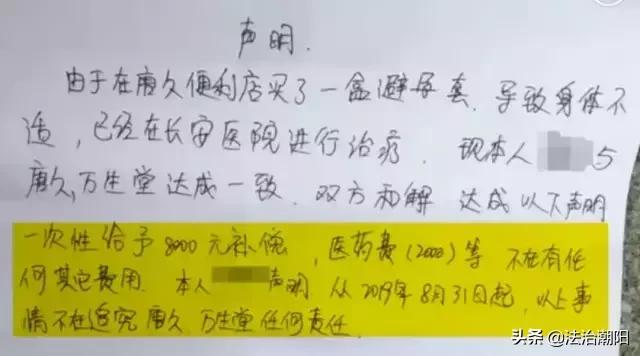 声明.
由于在唐久便利店买了一盒避孕套.导致身体不
适,已经在长安医院进行治疗.现本人 与
唐久,万生堂达成一致.双方和解 达成以下声明
一次性给予8000元补偿,医药费(2000)等 不在有任
何其它费用.本人 声明,从2019年8月31日起,以上事
情不在追究唐久 万生堂任何责任.
头条@法治潮阳